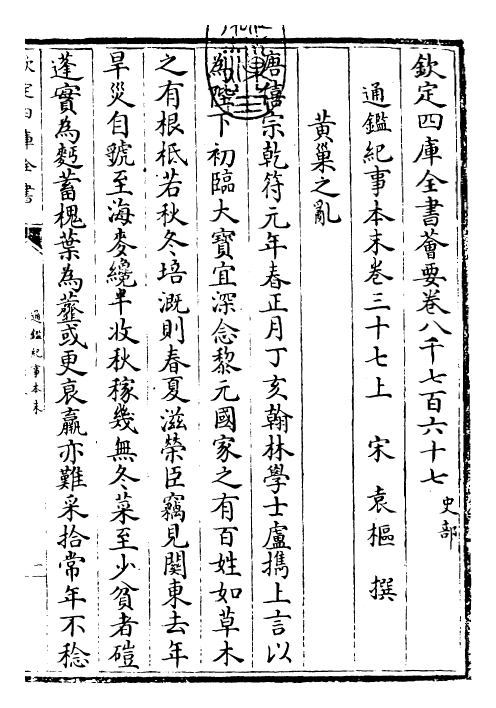 欽定四庫全書薈要卷八千七百六十七 史部
通鑑紀事本末卷三十七上 宋 袁樞 撰
黃巢之亂
唐僖宗乾符元年春正月丁亥翰林學士盧攜上言以
為陛下初臨大寶宜深念黎元國家之有百姓如草木
之有根柢若秋冬培溉則春夏滋榮臣竊見關東去年
旱災自虢至海麥纔半收秋稼幾無冬菜至少貧者磑
蓬實為麪蓄槐葉為虀或更衰羸亦難采拾常年不稔
欽定四庫全書
通鑑紀事本末